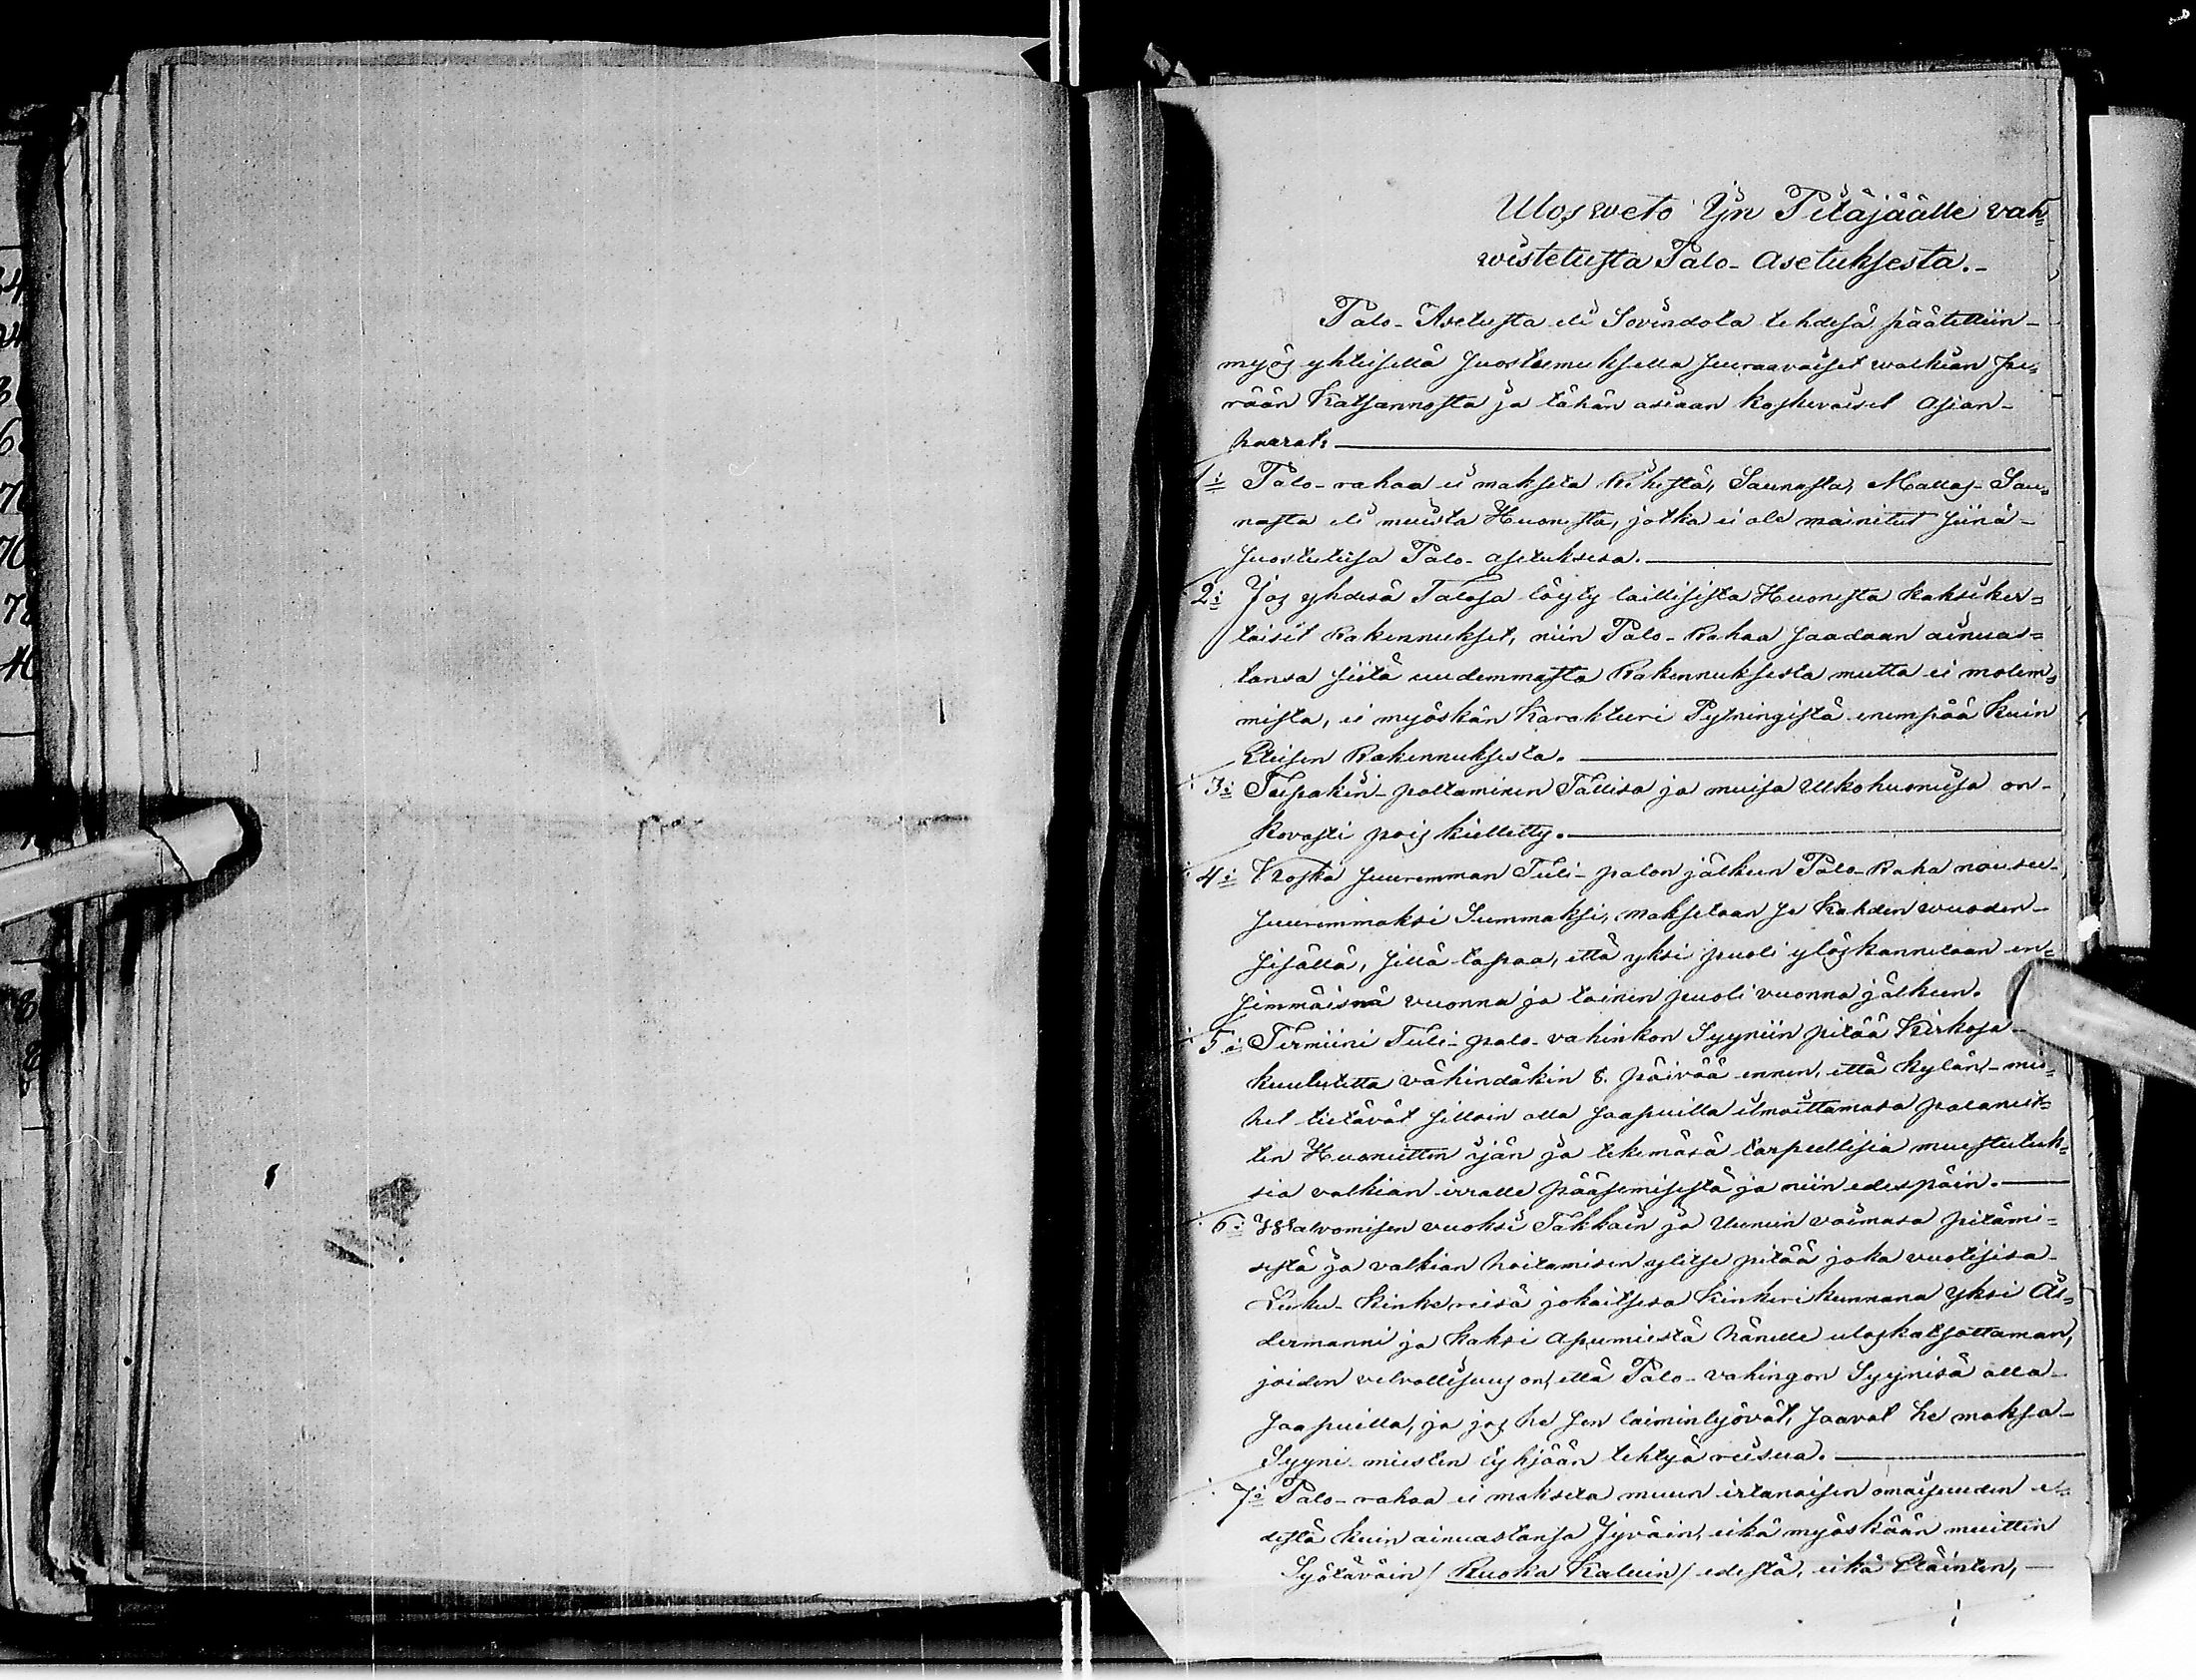 Ulosweto Ijn Pitäjäälle vah=
wistetusta Palo-Asetuksesta.-
Palo-Asetusta eli Sovindota tehdesä päätettiin-
myös yhteisellä Suostumuksella seuraavaiset walkian pe=
rään Katsannosta ja tähän asiaan koskevaiset Asian-
haarat:
1:= Palo-rahaa ei makseta Riihestä, Saunasta, Mallas-Sau=
nasta eli muista Huonesta, jotka ei ole mainitut siinä-
suostutuisa Palo-asetuksesa.
2:= Jos yhdesä Talosa löyty laillisista Huonesta kaksiker=
taisit Rakennukset, niin Palo-Rahaa saadaan ainuas=
tansa siitä uudemmasta Rakennuksesta mutta ei molem=
mista, ei myöskän Karakteeri Pytningistä enempää kuin
Eteisen Rakennuksesta.
3:= Tupakin-polttaminen Tallisa ja muisa Ulkohuoneisa on-
kovasti pois kielletty.
4:= Koska suuremman Tuli-palon jälkeen Palo-Raha nousee-
suuremmaksi Summaksi, maksetaan se Kahden wuoden-
sisällä, sillä tapaa, että yksi puoli ylöskannetaan en=
simmäisnä vuonna ja toinen puoli vuonna jälkeen.
5:= Termiini Tuli-palo-vahinkon Syyniin pitää Kirkosa-
kuulutetta vähindäkin 8. päivää ennen, että kylän-mie=
het tietävät silloin olla saapuilla ilmoittamasa palaneit=
ten Huoneitten ijän ja tekemäsä tarpeellisia muistutuk=
sia valkian irralle pääsemisestä ja niin edespäin.
6:= Walwomisen vuoksi Takkain ja Uunein voimasa pitämi=
sestä ja valkian hoitamisen ylitse pitää joka vuotisisa-
Luku-Kinkereisä jokaitsesa Kinkerikunnana yksi Ål=
dermanni ja Kaksi Apumiestä hänelle uloskatsottaman,
joiden velvollisuus on, että Palo-vahingon Syynisä olla-
saapuilla, ja jos he sen laiminlyövät, saavat he maksa-
Syyni-miesten tyhjään tehtyä reisua.
7:= Palo-rahaa ei makseta muun irtanaisen omaisuuden e=
destä kuin ainuastansa Jyväin, eikä myöskään muitten
Syötäväin / Ruoka Kaluin / edestä, eikä Eläinten,-